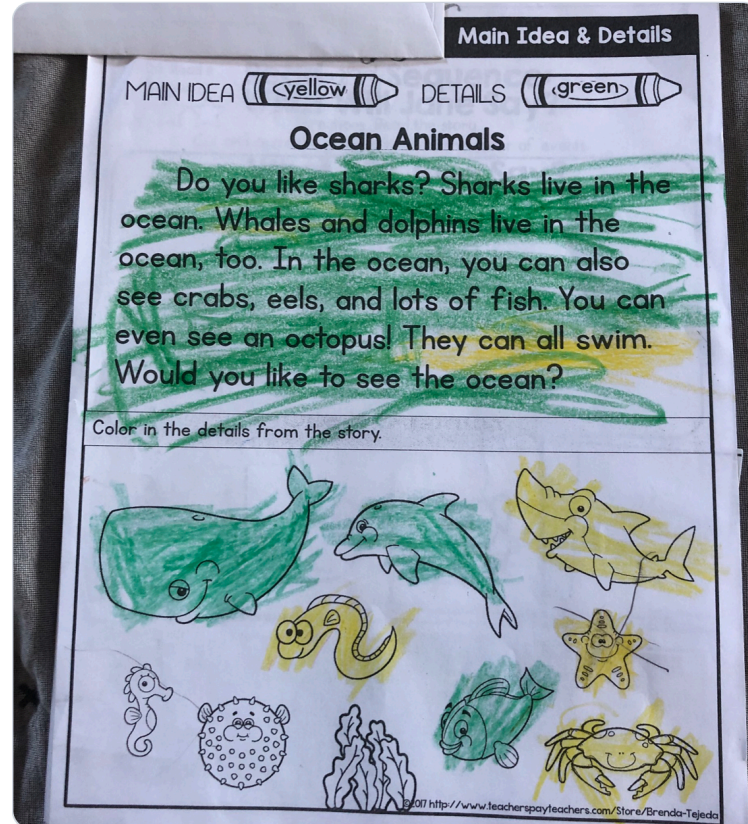 Main Idea & Details
MAIN IDEA yellow DETAILS green
Ocean Animals
Do you like sharks? Sharks live in the
ocean. Whales and dolphins live in the
ocean, too. In the ocean, you can also
see crabs, eels, and lots of fish. You can
even see an octopus! They can all swim.
Would you like to see the ocean?
Color in the details from the story.
©2017 http://www.teacherspayteachers.com/Store/Brenda-Tejeda